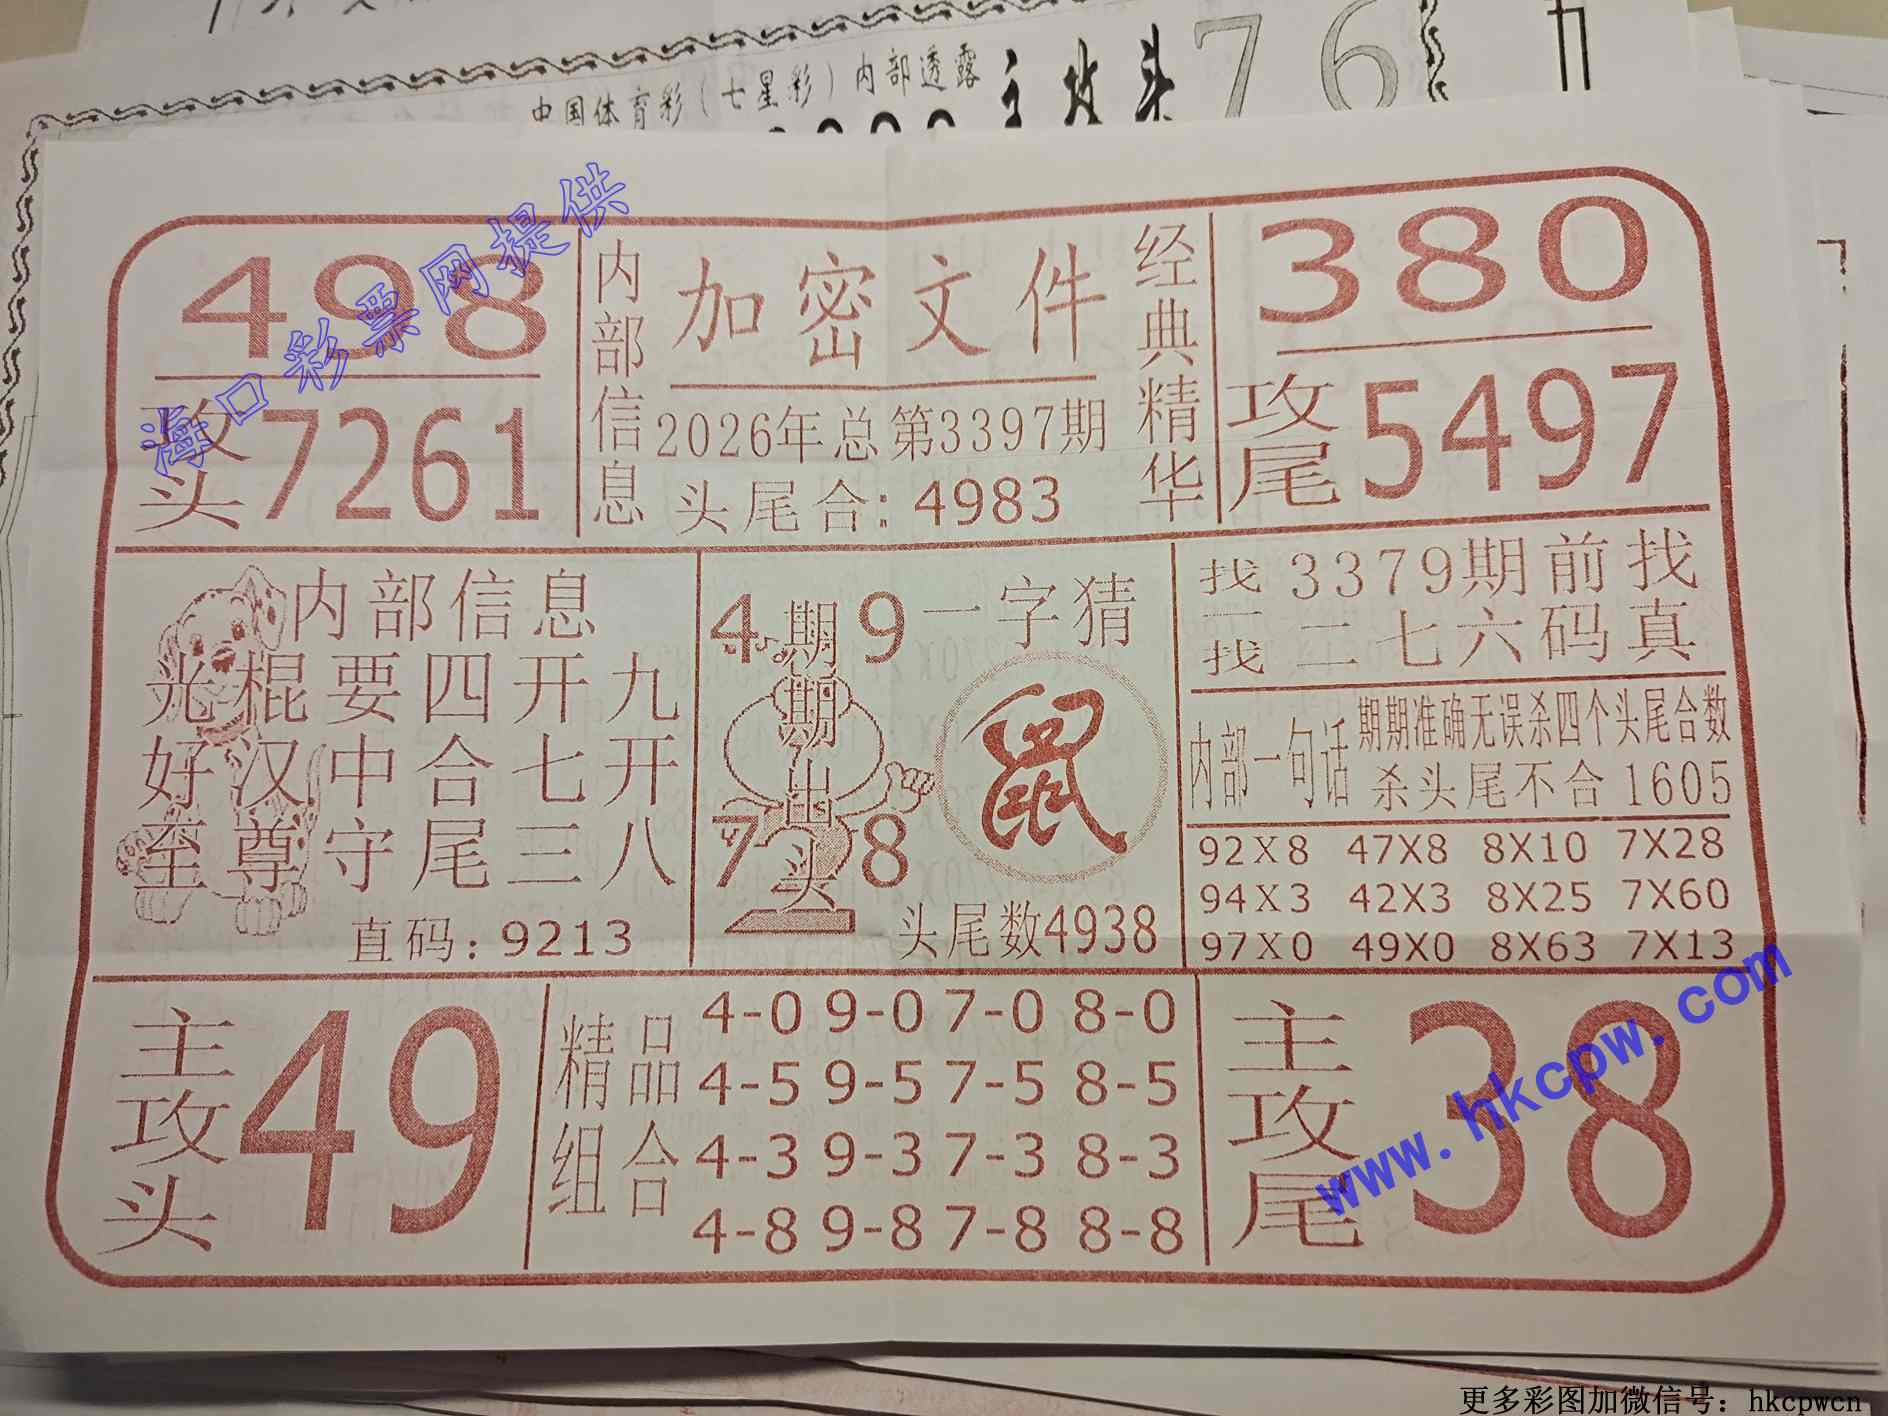 中国体育彩(七星彩)内部透露
主攻头76
498
攻头7261
内部信息
加密文件
2026年总第3397期
头尾合:4983
经典精华
380
攻尾5497
内部信息
光棍要四开九
好汉中合七开
至尊守尾三八
直码:9213
4 9
期期出头
7 8
一字猜
鼠
头尾数4938
找一找
3379期前找
二七六码真
内部一句话
期期准确无误杀四个头尾合数
杀头尾不合1605
92X8 47X8 8X10 7X28
94X3 42X3 8X25 7X60
97X0 49X0 8X63 7X13
主攻头49
精品组合
4-0 9-0 7-0 8-0
4-5 9-5 7-5 8-5
4-3 9-3 7-3 8-3
4-8 9-8 7-8 8-8
主攻尾38
海口彩票网提供
www.hkcpw.com
更多彩图加微信号:hkcpwcn